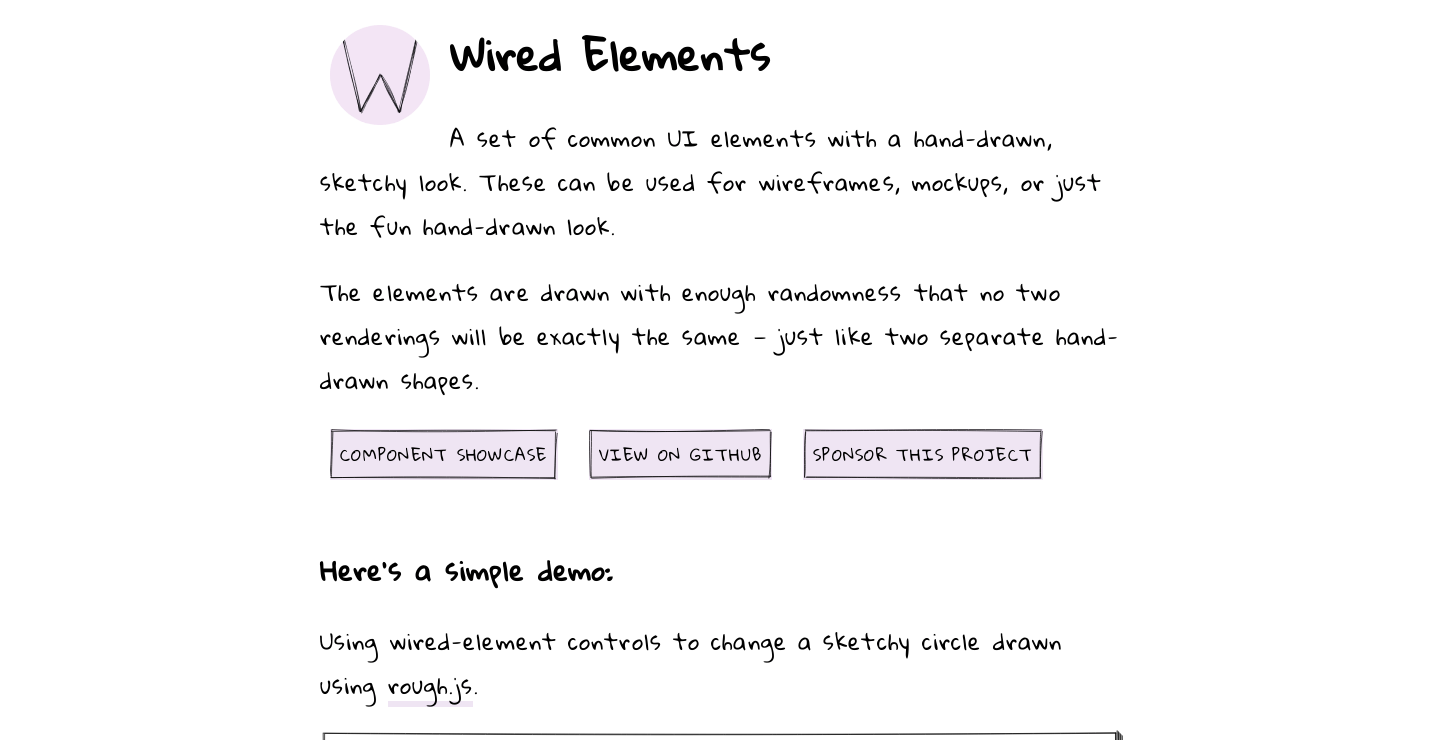 W
Wired Elements
A set of common UI elements with a hand-drawn,
sketchy look. These can be used for wireframes, mockups, or just
the fun hand-drawn look.
The elements are drawn with enough randomness that no two
renderings will be exactly the same - just like two separate hand-
drawn shapes.
COMPONENT SHOWCASE VIEW ON GITHUB SPONSOR THIS PROJECT
Here's a simple demo:
Using wired-element controls to change a sketchy circle drawn
using rough.js.